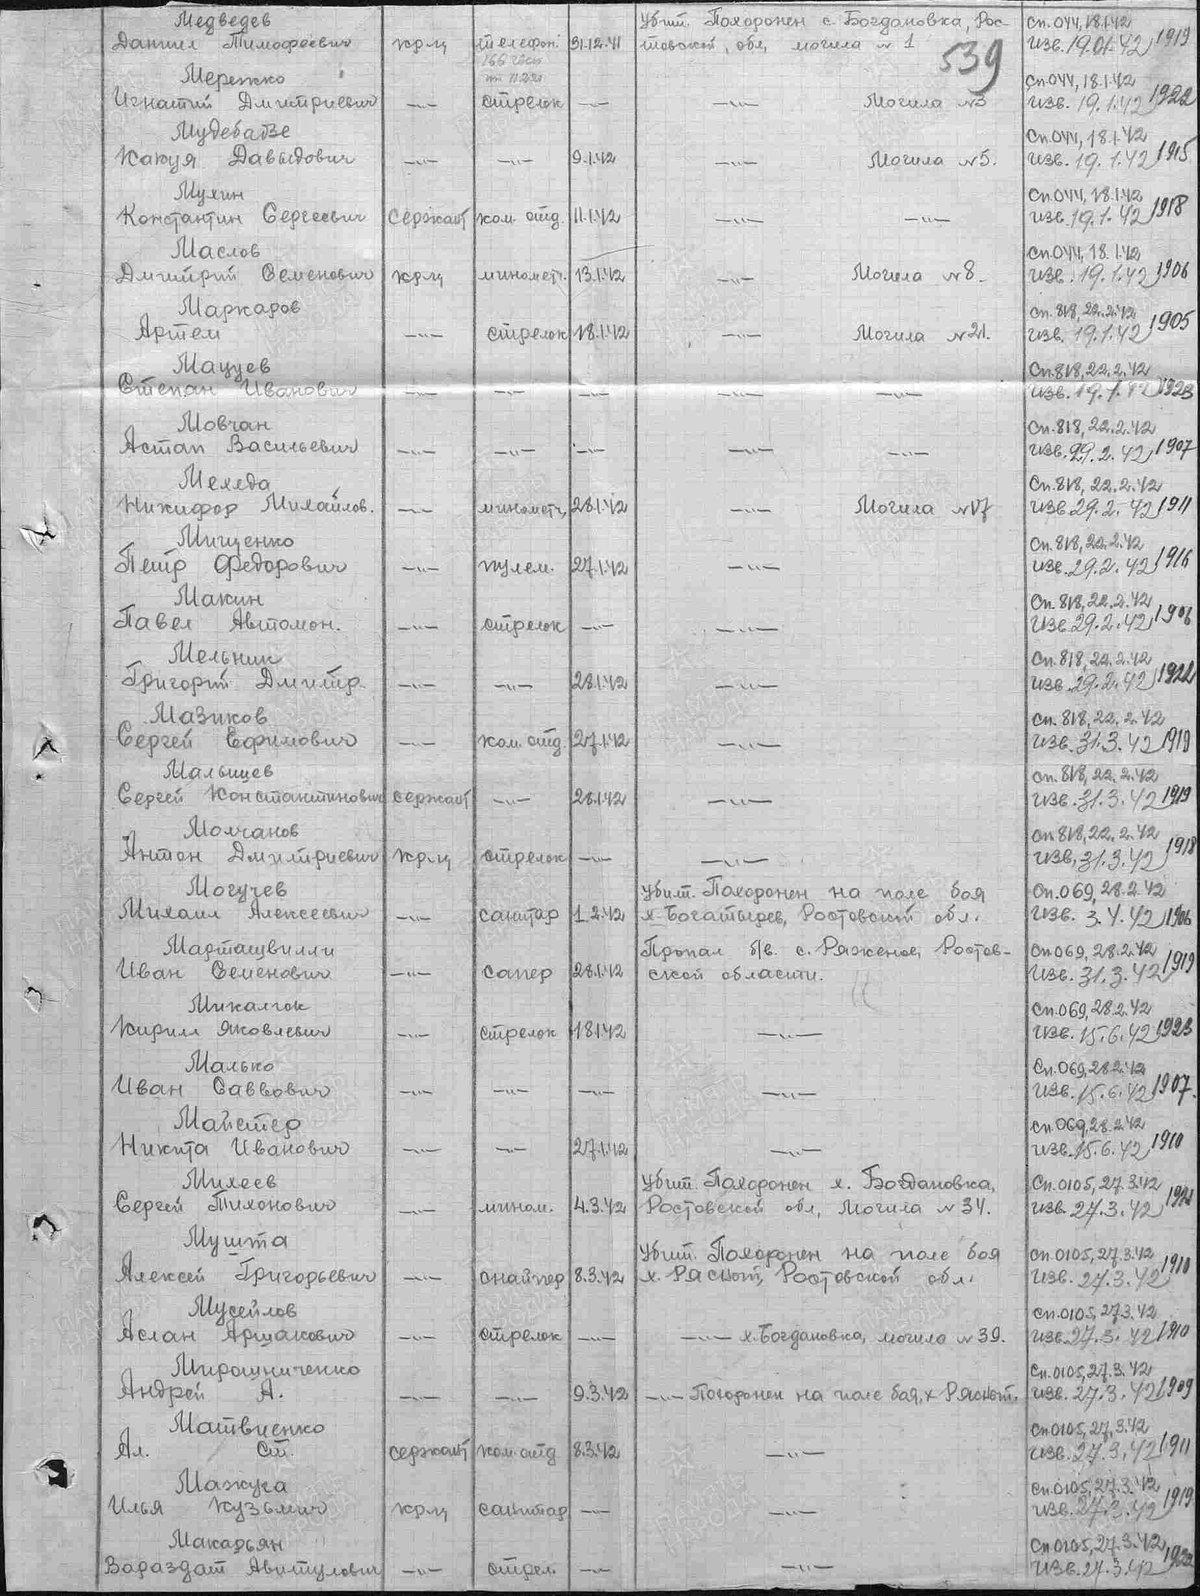 Медведев
Даниил Тимофеевич кр-ц телефон. 31.12.41 Убит. Похоронен с. Богдановка, Рос-
товской, обл, могила №1 Сп.044, 18.1.42
изв. 19.01.42 1919
539
Мережко
Игнатий Дмитриевич —"— стрелок —"— —"— Могила №3 Сп.044, 18.1.42
изв. 19.1.42 1922
Мудебадзе
Какуя Давыдович —"— —"— 9.1.42 —"— Могила №5. Сп.044, 18.1.42
изв. 19.1.42 1915
Мухин
Константин Сергеевич сержант ком. отд. 11.1.42 —"— —"— Сп.044, 18.1.42
изв. 19.1.42 1918
Маслов
Дмитрий Семенович кр-ц минометч. 13.1.42 —"— Могила №8. Сп.044, 18.1.42
изв. 19.1.42 1906
Маркаров
Артем —"— стрелок 18.1.42 —"— Могила №21. Сп.818, 22.2.42
изв. 19.1.42 1905
Мацуев
Степан Иванович —"— —"— —"— —"— —"— Сп.818, 22.2.42
изв. 19.1.42 1923
Мовчан
Астап Васильевич —"— —"— —"— —"— —"— Сп.818, 22.2.42
изв. 29.2.42 1907
Меледа
Никифор Михайлов. —"— минометч. 28.1.42 —"— Могила №17 Сп.818, 22.2.42
изв. 29.2.42 1911
Мищенко
Петр Федорович —"— пулем. 27.1.42 —"— Сп.818, 22.2.42
изв. 29.2.42 1916
Макин
Павел Автомон. —"— стрелок —"— —"— Сп.818, 22.2.42
изв. 29.2.42 1906
Мельник
Григорий Дмитр. —"— —"— 28.1.42 —"— Сп.818, 22.2.42
изв. 29.2.42 1922
Мазиков
Сергей Ефимович —"— ком. отд. 27.1.42 —"— Сп.818, 22.2.42
изв. 31.3.42 1919
Малышев
Сергей Константинович сержант —"— 28.1.42 —"— Сп.818, 22.2.42
изв. 31.3.42 1919
Молчанов
Антон Дмитриевич кр-ц стрелок —"— —"— Сп.818, 22.2.42
изв. 31.3.42 1918
Могучев
Михаил Алексеевич —"— санитар 1.2.42 Убит. Похоронен на поле боя
х. Богатырев, Ростовской обл. Сп.069, 28.2.42
изв. 3.4.42 1906
Марташвилли
Иван Семенович —"— сапер 28.1.42 Пропал б/в. с. Ряженое, Ростов-
ской области. Сп.069, 28.2.42
изв. 31.3.42 1919
Михалюк
Кирилл Яковлевич —"— стрелок 18.1.42 —"— Сп.069, 28.2.42
изв. 15.6.42 1923
Малько
Иван Саввович —"— —"— —"— —"— Сп.069, 28.2.42
изв. 15.6.42 1907.
Майстер
Никита Иванович —"— —"— 27.1.42 —"— Сп.069, 28.2.42
изв. 15.6.42 1910
Михеев
Сергей Тихонович —"— мином. 4.3.42 Убит. Похоронен х. Богдановка,
Ростовской обл, Могила №34. Сп.0105, 27.3.42
изв. 27.3.42
Мушта
Алексей Григорьевич —"— снайпер 8.3.42 Убит. Похоронен на поле боя
х. Рясной, Ростовской обл. Сп.0105, 27.3.42
изв. 27.3.42 1910
Мусейлов
Аслан Аршакович —"— стрелок —"— —"— х. Богдановка, могила №39. Сп.0105, 27.3.42
изв. 27.3.42 1910
Мирошниченко
Андрей А. —"— —"— 9.3.42 —"— Похоронен на поле боя, х Рясной. Сп.0105, 27.3.42
изв. 27.3.42 1909
Матвиенко
Ал. Ст. сержант ком. отд 8.3.42 —"— Сп.0105, 27.3.42
изв. 27.3.42 1911
Мажуга
Илья Кузьмич кр-ц санитар —"— —"— Сп.0105, 27.3.42
изв. 27.3.42 1919
Макарьян
Вараздат Авитулович —"— стрел. —"— —"— Сп.0105, 27.3.42
изв. 27.3.42